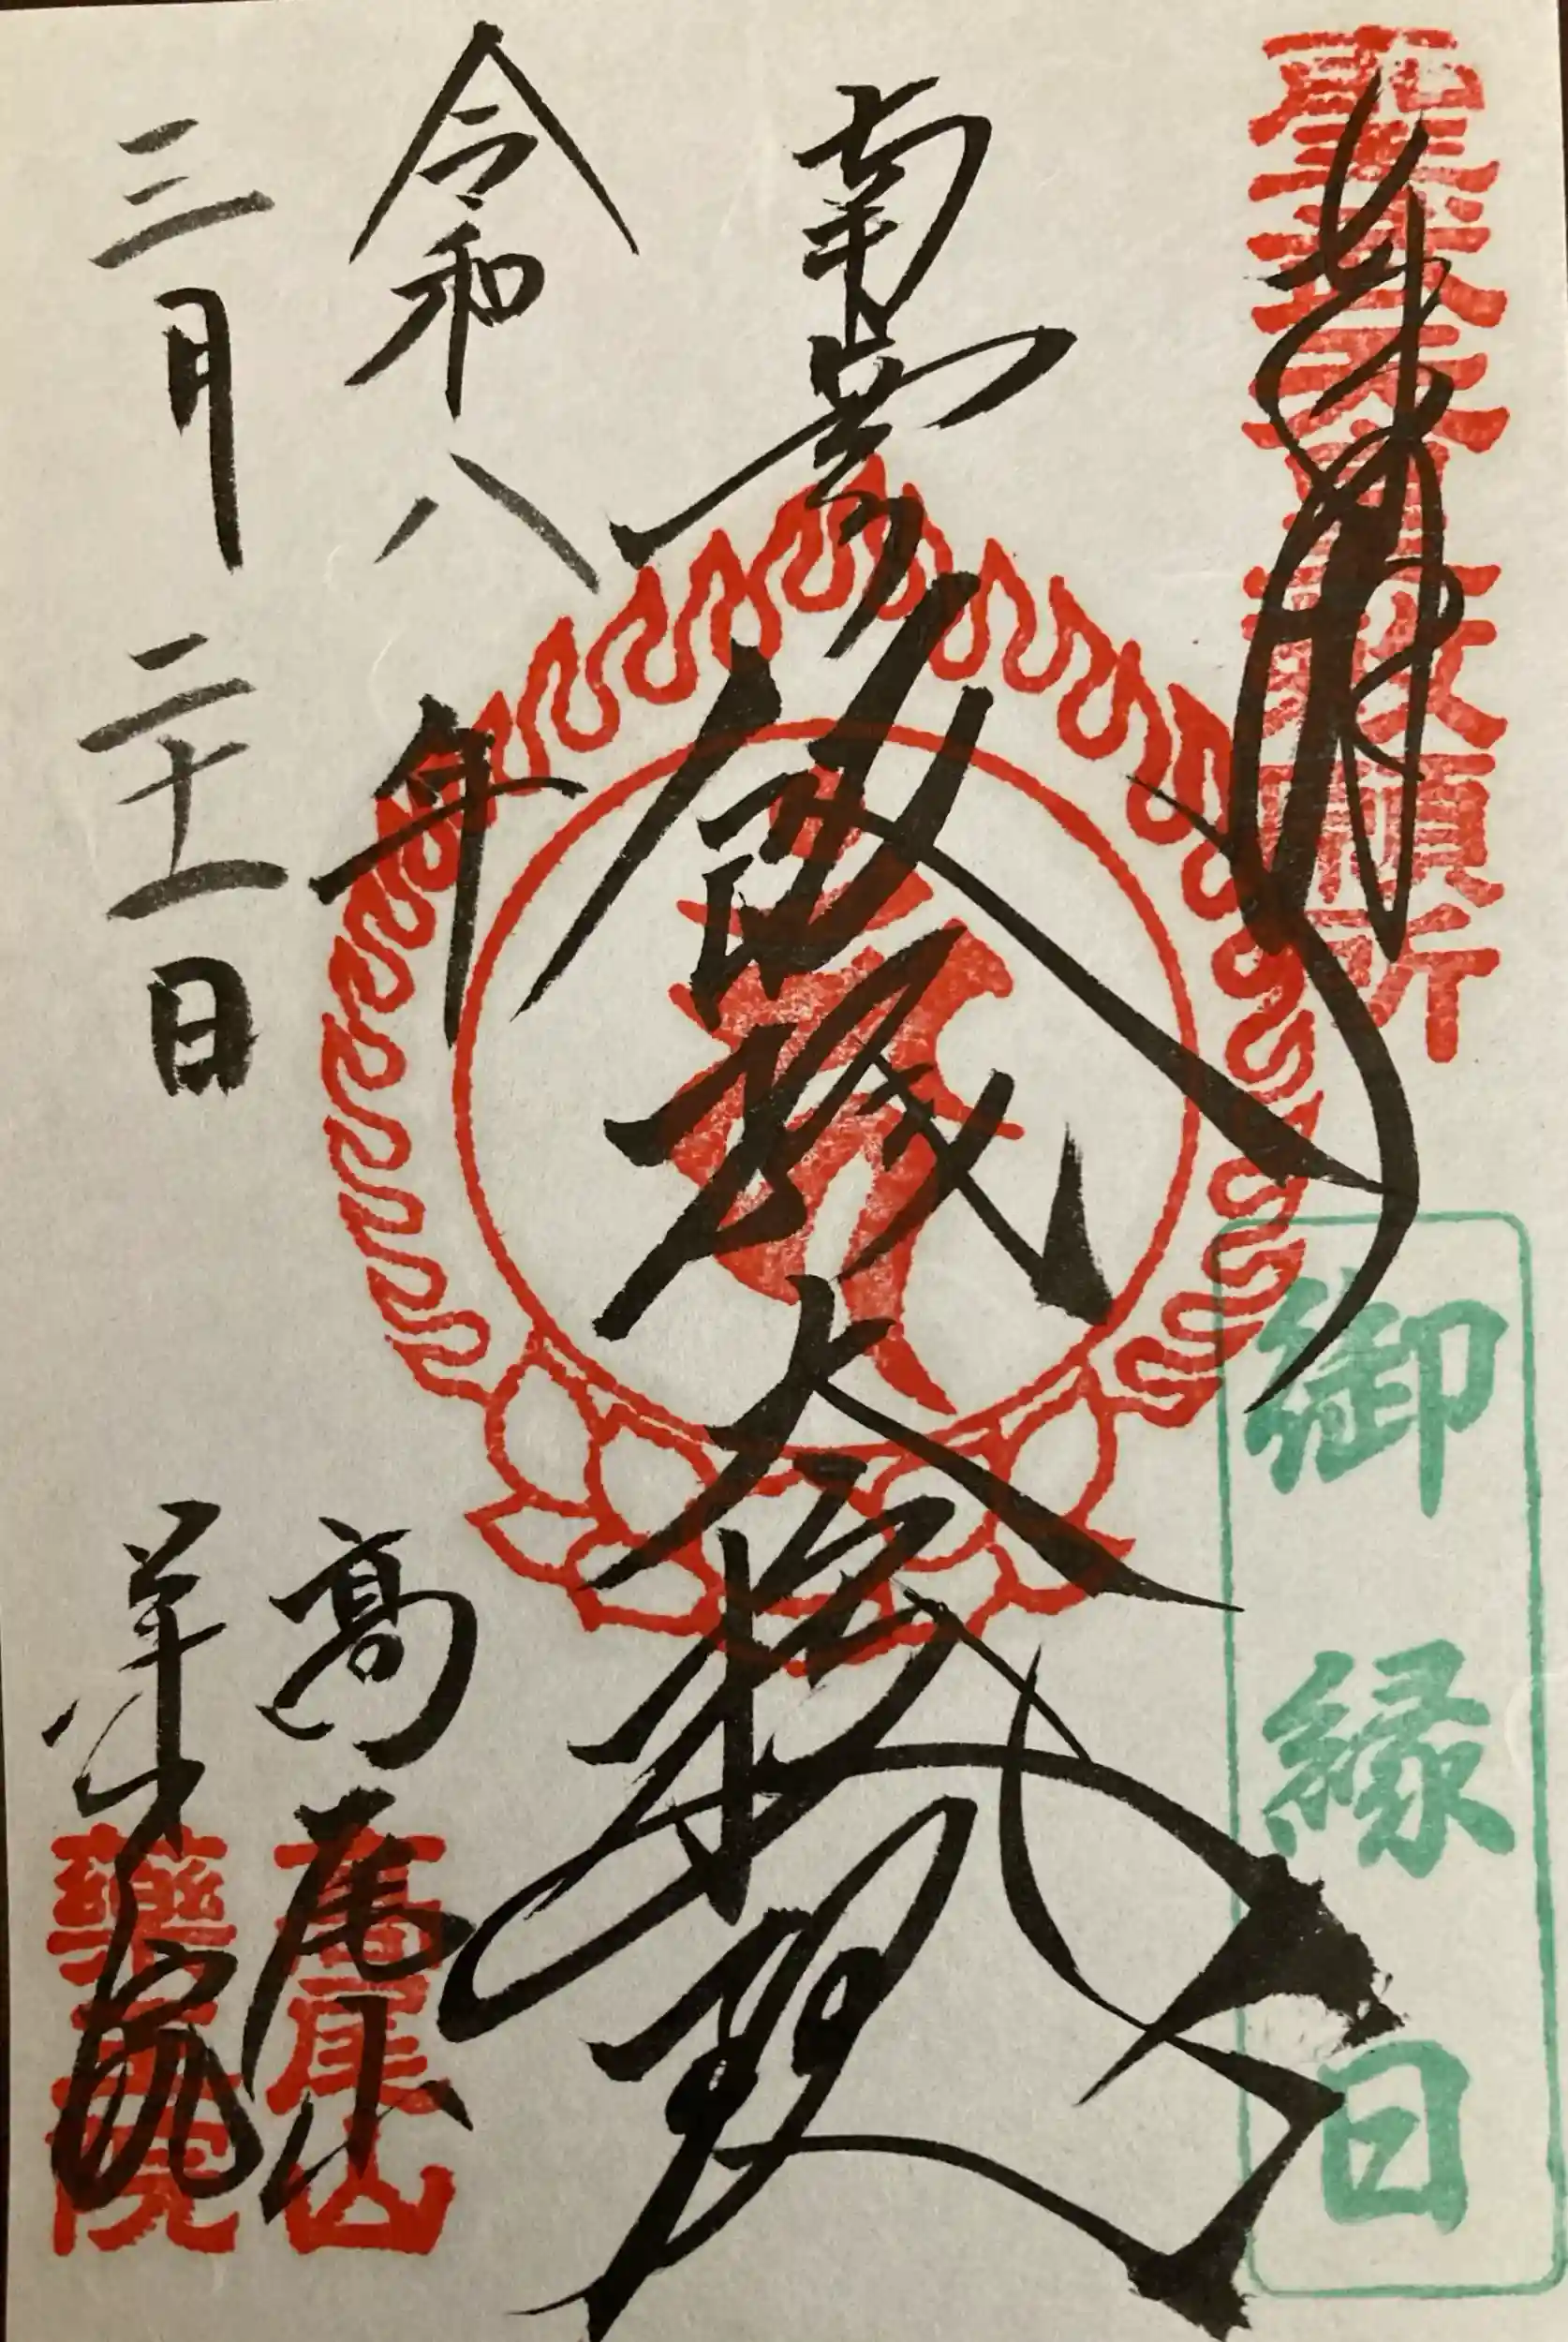 奉拝
聖武天皇勅願所
御縁日
南無
飯縄大権現
令和八年
三月二十一日
高尾山
高尾山
薬王院
薬王院